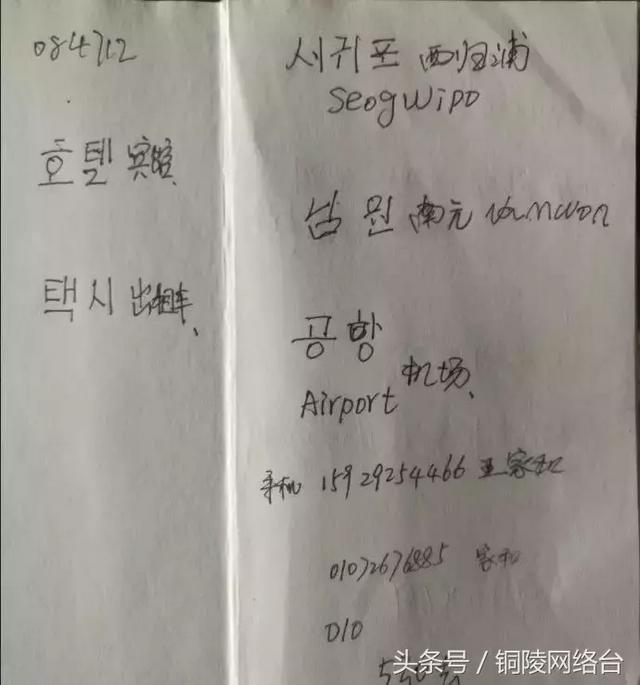 084712
호텔 宾馆、
택시 出租车、
서귀포 西归浦
Seogwipo
남원 南元 Namwon
공항
Airport 机场、
手机 15929254466 王家和
01072676885 家和
010
头条号 / 铜陵网络台